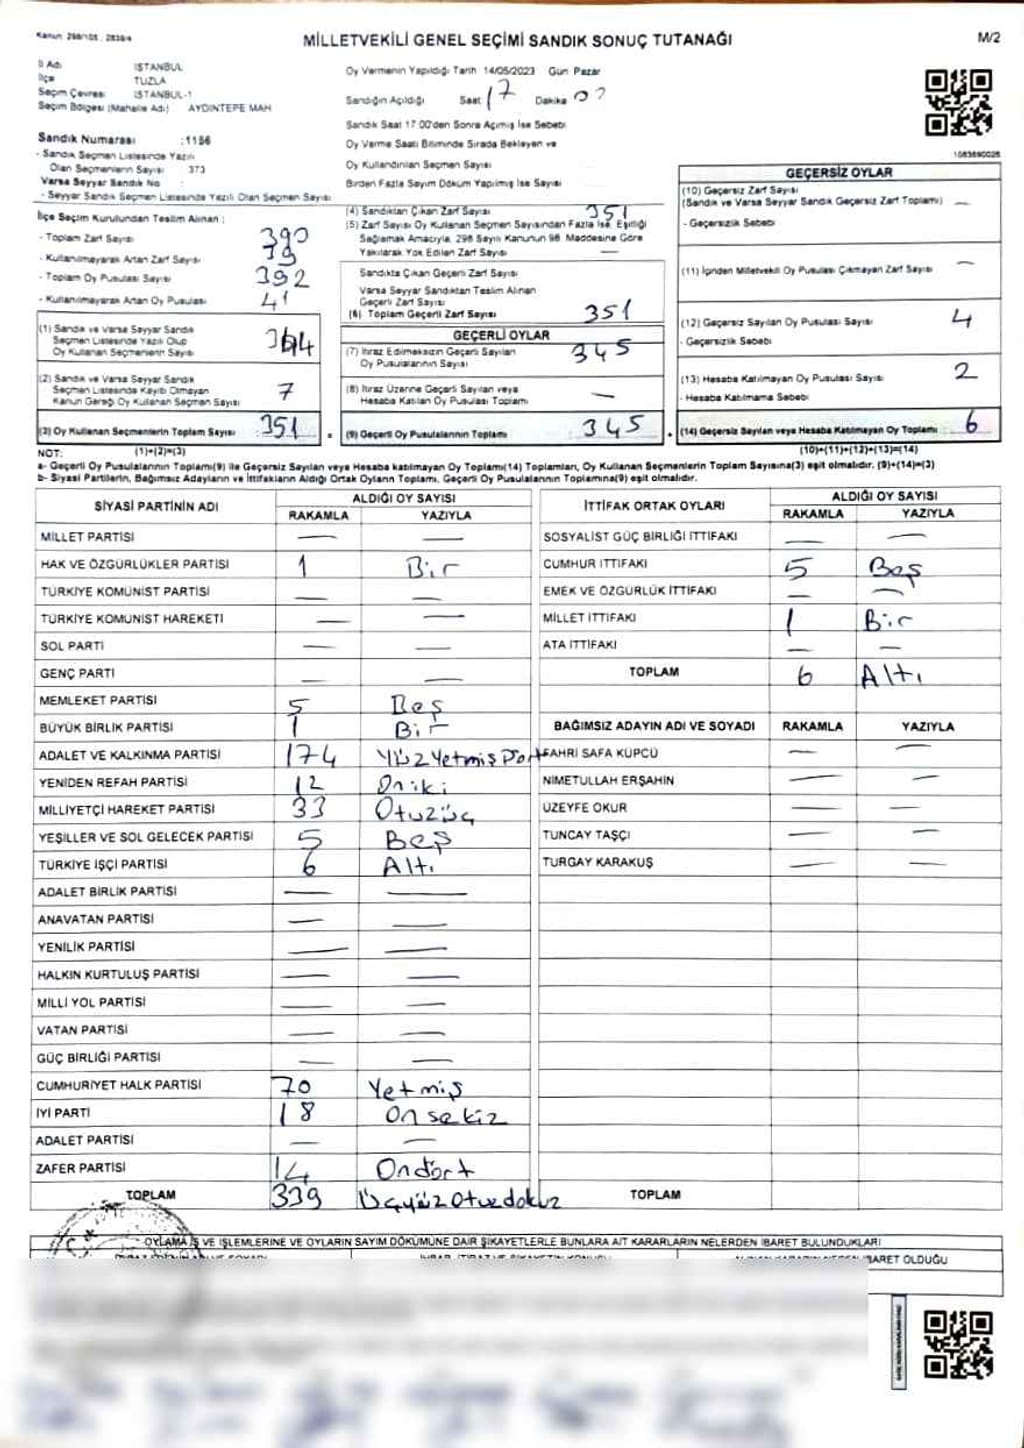 Kanun: 298/105, 2839/4
MİLLETVEKİLİ GENEL SEÇİMİ SANDIK SONUÇ TUTANAĞI
M/2
İl Adı İSTANBUL
İlçe TUZLA
Seçim Çevresi İSTANBUL-1
Seçim Bölgesi (Mahalle Adı) AYDINTEPE MAH
Sandık Numarası :1156
- Sandık Seçmen Listesinde Yazılı
Olan Seçmenlerin Sayısı 373
Varsa Seyyar Sandık No :
- Seyyar Sandık Seçmen Listesinde Yazılı Olan Seçmen Sayısı
Oy Vermenin Yapıldığı Tarih 14/05/2023 Gün Pazar
Sandığın Açıldığı Saat 17 Dakika
Sandık Saat 17:00'den Sonra Açılmış İse Sebebi
Oy Verme Saati Bitiminde Sırada Bekleyen ve
Oy Kullandırılan Seçmen Sayısı
Birden Fazla Sayım Döküm Yapılmış İse Sayısı
İlçe Seçim Kurulundan Teslim Alınan :
- Toplam Zarf Sayısı 390
- Kullanılmayarak Artan Zarf Sayısı 39
- Toplam Oy Pusulası Sayısı 392
- Kullanılmayarak Artan Oy Pusulası 41
(1) Sandık ve Varsa Seyyar Sandık
Seçmen Listesinde Yazılı Olup
Oy Kullanan Seçmenlerin Sayısı 344
(2) Sandık ve Varsa Seyyar Sandık
Seçmen Listesinde Kayıtlı Olmayan
Kanun Gereği Oy Kullanan Seçmen Sayısı 7
(3) Oy Kullanan Seçmenlerin Toplam Sayısı : 351
(4) Sandıktan Çıkan Zarf Sayısı 351
(5) Zarf Sayısı Oy Kullanan Seçmen Sayısından Fazla İse, Eşitliği
Sağlamak Amacıyla, 298 Sayılı Kanunun 98. Maddesine Göre
Yakılarak Yok Edilen Zarf Sayısı —
Sandıkta Çıkan Geçerli Zarf Sayısı
Varsa Seyyar Sandıktan Teslim Alınan
Geçerli Zarf Sayısı
(6) Toplam Geçerli Zarf Sayısı 351
GEÇERLİ OYLAR
(7) İtiraz Edilmeksizin Geçerli Sayılan
Oy Pusulalarının Sayısı 345
(8) İtiraz Üzerine Geçerli Sayılan veya
Hesaba Katılan Oy Pusulası Toplamı —
(9) Geçerli Oy Pusulalarının Toplamı 345
1083690026
GEÇERSİZ OYLAR
(10) Geçersiz Zarf Sayısı
(Sandık ve Varsa Seyyar Sandık Geçersiz Zarf Toplamı) —
- Geçersizlik Sebebi
(11) İçinden Milletvekili Oy Pusulası Çıkmayan Zarf Sayısı —
(12) Geçersiz Sayılan Oy Pusulası Sayısı 4
- Geçersizlik Sebebi
(13) Hesaba Katılmayan Oy Pusulası Sayısı 2
- Hesaba Katılmama Sebebi
(14) Geçersiz Sayılan veya Hesaba Katılmayan Oy Toplamı : 6
NOT: (1)+(2)=(3) (10)+(11)+(12)+(13)=(14)
a- Geçerli Oy Pusulalarının Toplamı(9) ile Geçersiz Sayılan veya Hesaba katılmayan Oy Toplamı(14) Toplamları, Oy Kullanan Seçmenlerin Toplam Sayısına(3) eşit olmalıdır. (9)+(14)=(3)
b- Siyasi Partilerin, Bağımsız Adayların ve İttifakların Aldığı Ortak Oyların Toplamı, Geçerli Oy Pusulalarının Toplamına(9) eşit olmalıdır.
SİYASİ PARTİNİN ADI ALDIĞI OY SAYISI
RAKAMLA YAZIYLA
MİLLET PARTİSİ — —
HAK VE ÖZGÜRLÜKLER PARTİSİ 1 Bir
TÜRKİYE KOMÜNİST PARTİSİ — —
TÜRKİYE KOMÜNİST HAREKETİ — —
SOL PARTİ — —
GENÇ PARTİ — —
MEMLEKET PARTİSİ 5 Beş
BÜYÜK BİRLİK PARTİSİ 1 Bir
ADALET VE KALKINMA PARTİSİ 174 YüzYetmişDört
YENİDEN REFAH PARTİSİ 12 Oniki
MİLLİYETÇİ HAREKET PARTİSİ 33 Otuzüç
YEŞİLLER VE SOL GELECEK PARTİSİ 5 Beş
TÜRKİYE İŞÇİ PARTİSİ 6 Altı
ADALET BİRLİK PARTİSİ — —
ANAVATAN PARTİSİ — —
YENİLİK PARTİSİ — —
HALKIN KURTULUŞ PARTİSİ — —
MİLLİ YOL PARTİSİ — —
VATAN PARTİSİ — —
GÜÇ BİRLİĞİ PARTİSİ — —
CUMHURİYET HALK PARTİSİ 70 Yetmiş
İYİ PARTİ 18 Onsekiz
ADALET PARTİSİ — —
ZAFER PARTİSİ 14 Ondört
TOPLAM 339 Üçyüzotuzdokuz
İTTİFAK ORTAK OYLARI ALDIĞI OY SAYISI
RAKAMLA YAZIYLA
SOSYALİST GÜÇ BİRLİĞİ İTTİFAKI — —
CUMHUR İTTİFAKI 5 Beş
EMEK VE ÖZGÜRLÜK İTTİFAKI — —
MİLLET İTTİFAKI 1 Bir
ATA İTTİFAKI — —
TOPLAM 6 Altı
BAĞIMSIZ ADAYIN ADI VE SOYADI RAKAMLA YAZIYLA
FAHRİ SAFA KÜPCÜ — —
NİMETULLAH ERŞAHİN — —
ÜZEYFE OKUR — —
TUNCAY TAŞÇI — —
TURGAY KARAKUŞ — —
TOPLAM
OYLAMA İŞ VE İŞLEMLERİNE VE OYLARIN SAYIM DÖKÜMÜNE DAİR ŞİKAYETLERLE BUNLARA AİT KARARLARIN NELERDEN İBARET BULUNDUKLARI
İBARET OLDUĞU